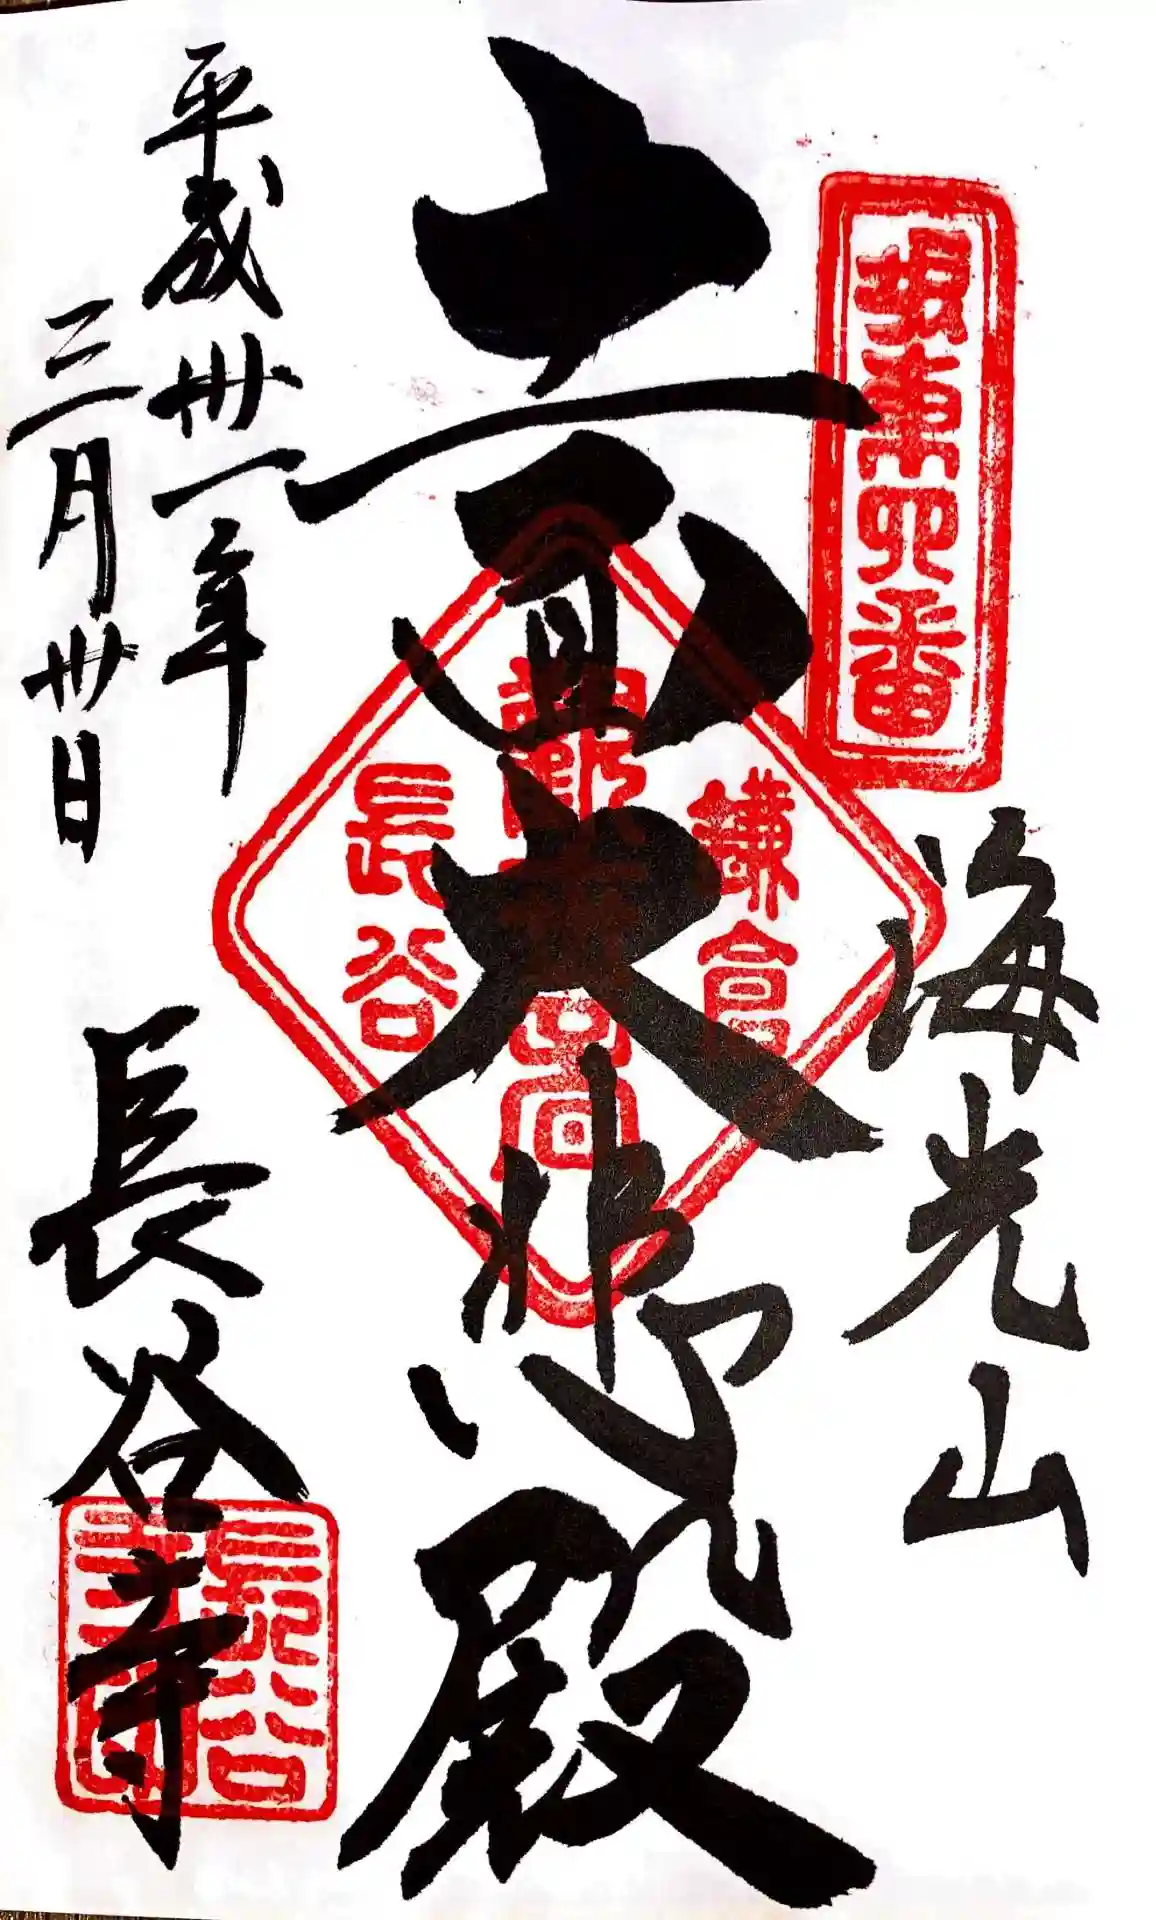 坂東四番
海光山
十一面大悲殿
鎌倉
長谷
平成卅一年
三月卅日
長谷寺
長谷寺印